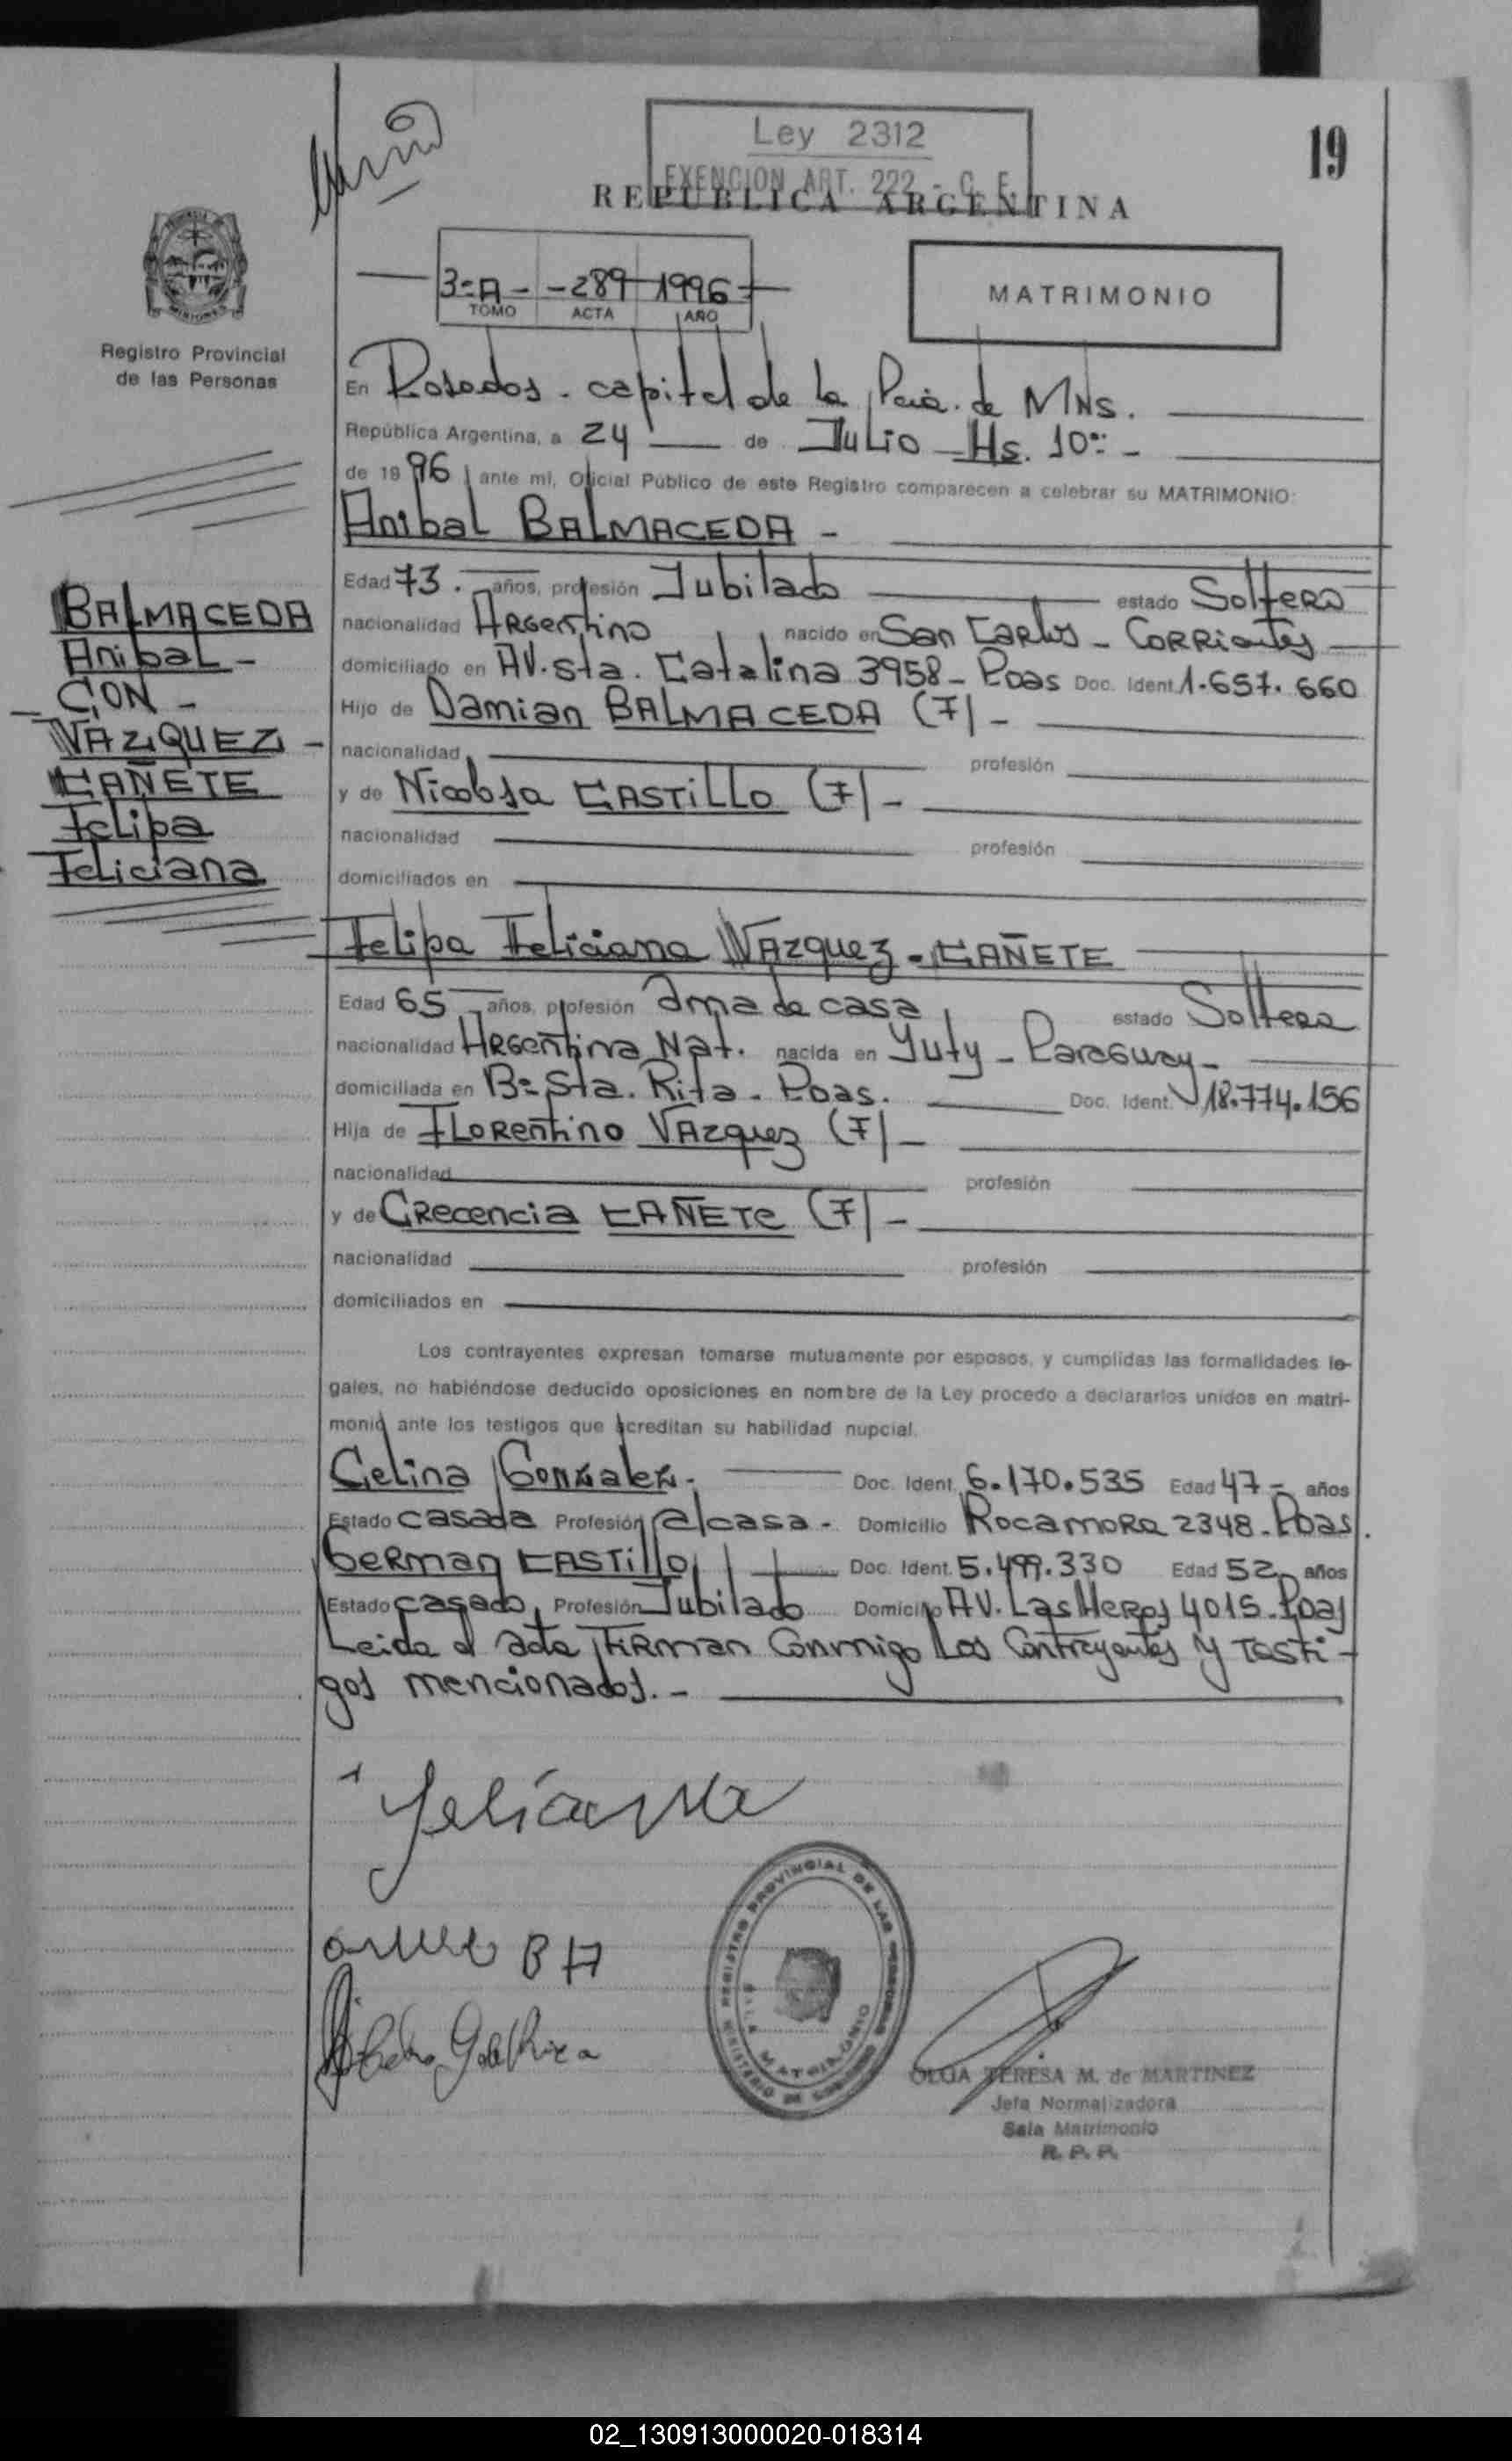 Ley 2312
EXENCION ART. 222 - C. F.
19
REPUBLICA ARGENTINA
3=A - -289 1996
TOMO ACTA AÑO
MATRIMONIO
Registro Provincial
de las Personas
En Posadas - capital de la Pcia. de MNS.
República Argentina, a 24 de Julio Hs. 10:-
de 1996 ante mí, Oficial Público de este Registro comparecen a celebrar su MATRIMONIO:
Anibal BALMACEDA -
Edad 73. años, profesión Jubilado estado Soltero
nacionalidad Argentino nacido en San Carlos - Corrientes
domiciliado en AV. Sta. Catalina 3958 - Pdas Doc. Ident. 1.657.660
Hijo de Damian BALMACEDA (F) -
nacionalidad profesión
y de Nicolasa CASTILLO (F) -
nacionalidad profesión
domiciliados en
BALMACEDA
Anibal -
- CON -
VAZQUEZ -
CAÑETE
Felipa
Feliciana
Felipa Feliciana VAZQUEZ - CAÑETE
Edad 65 años, profesión ama de casa estado Soltera
nacionalidad Argentina Nat. nacida en Yuty - Paraguay -
domiciliada en B= Sta. Rita - Pdas. Doc. Ident. 18.774.156
Hija de Florentino VAZQUEZ (F) -
nacionalidad profesión
y de Crecencia CAÑETE (F) -
nacionalidad profesión
domiciliados en
Los contrayentes expresan tomarse mutuamente por esposos, y cumplidas las formalidades le-
gales, no habiéndose deducido oposiciones en nombre de la Ley procedo a declararlos unidos en matri-
monio ante los testigos que acreditan su habilidad nupcial.
Celina Gonzalez - Doc. Ident. 6.170.535 Edad 47 - años
Estado casada Profesión a/casa - Domicilio Rocamora 2348 - Pdas.
German CASTILLO Doc. Ident. 5.499.330 Edad 52 años
Estado casado Profesión Jubilado Domicilio AV. Las Heras 4015 - Pdas
Leida el acta firman conmigo los contrayentes y testi-
gos mencionados. -
Feliciana
BA
REGISTRO PROVINCIAL DE LAS PERSONAS
MATRIMONIO
OLGA TERESA M. de MARTINEZ
Jefa Normalizadora
Sala Matrimonio
R. P. P.
02_130913000020-018314